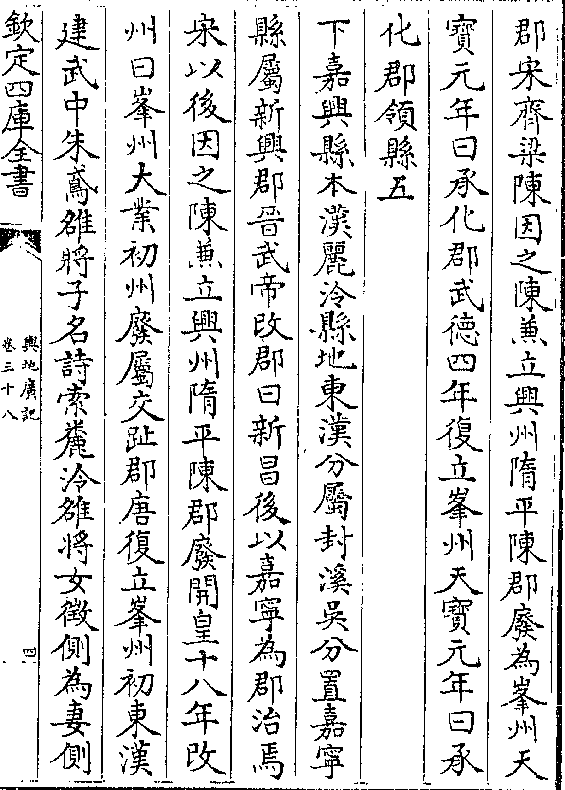 郡宋齊梁陳因之陳兼立興州隋平陳郡廢為峯州天
寶元年曰承化郡武德四年復立峯州天寶元年曰承
化郡領縣五
下嘉興縣本漢麗泠縣地東漢分屬封溪吳分置嘉寧
縣屬新興郡晉武帝改郡曰新昌後以嘉寧為郡治焉
宋以後因之陳兼立興州隋平陳郡廢開皇十八年改
州曰峯州大業初州廢屬交趾郡唐復立峯州初東漢
建武中朱鳶雒將子名詩索麊泠雒將女徵側為妻側
欽定四庫全書
輿地廣記
卷三十八
四